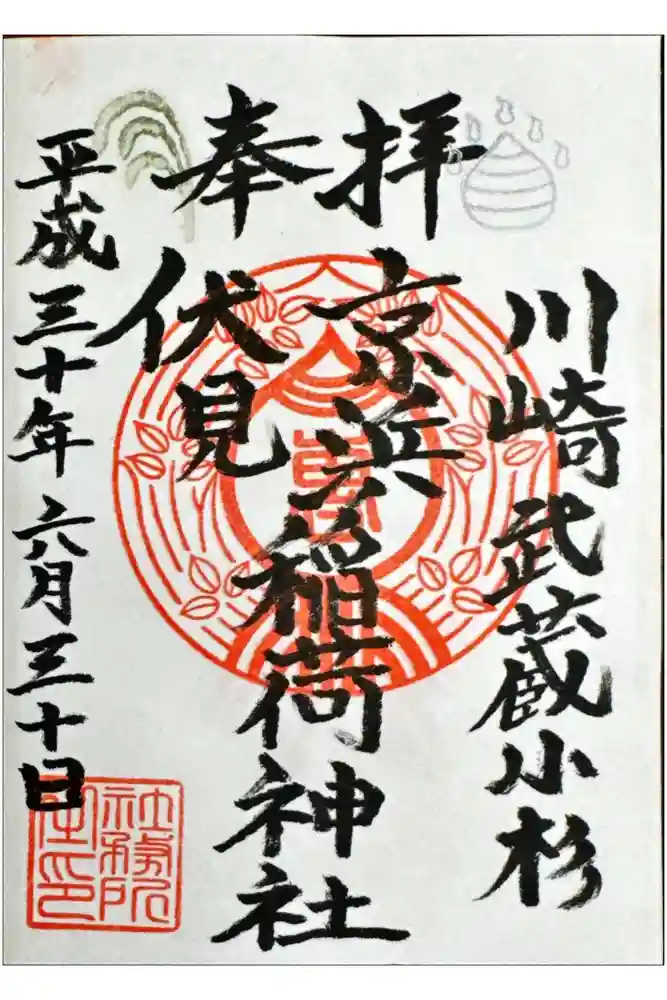 奉拝
川崎武蔵小杉
京浜
伏見
稲荷神社
平成三十年六月三十日
社務所